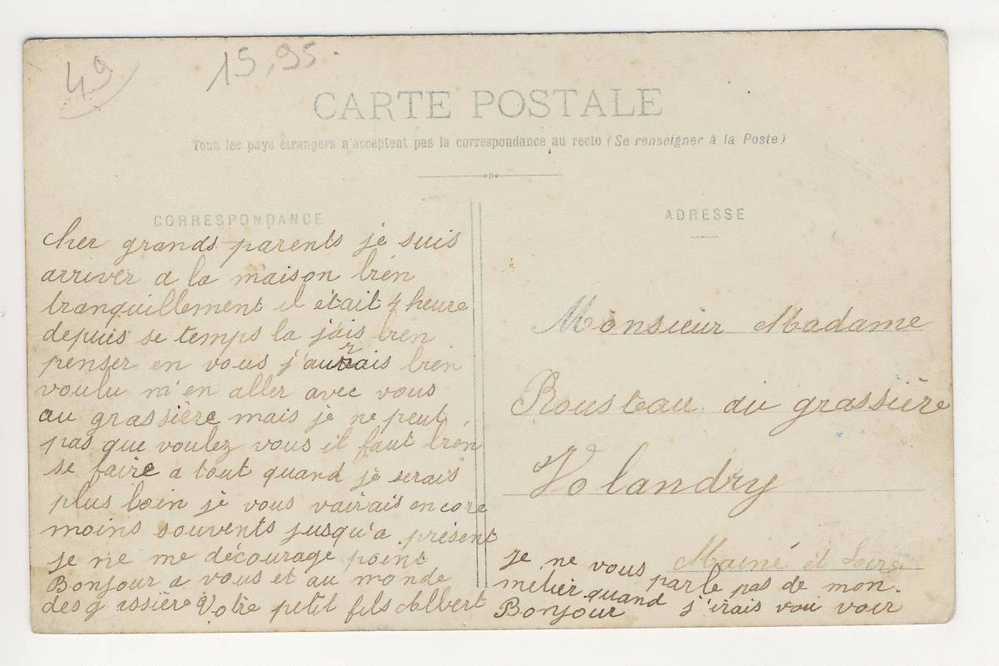 49
15,95.
CARTE POSTALE
Tous les pays étrangers n'acceptent pas la correspondance au recto (Se renseigner à la Poste)
CORRESPONDANCE
cher grands parents je suis
arriver a la maison bien
tranquillement il était 4 heure
depuis se temps la jais bien
penser en vous j'aurrais bien
voulu m'en aller avec vous
au grassière mais je ne peut
pas que voulez vous il faut bien
se faire a tout quand je serais
plus loin je vous vairais encore
moins souvents jusqu'a présent
je ne me décourage point
Bonjour a vous et au monde
des g assière Votre petit fils Albert
ADRESSE
Monsieur Madame
Rousteau du grassière
Volandry
Mainé et Loire
je ne vous parle pas de mon
metier quand j'irais vou voir
Bonjour